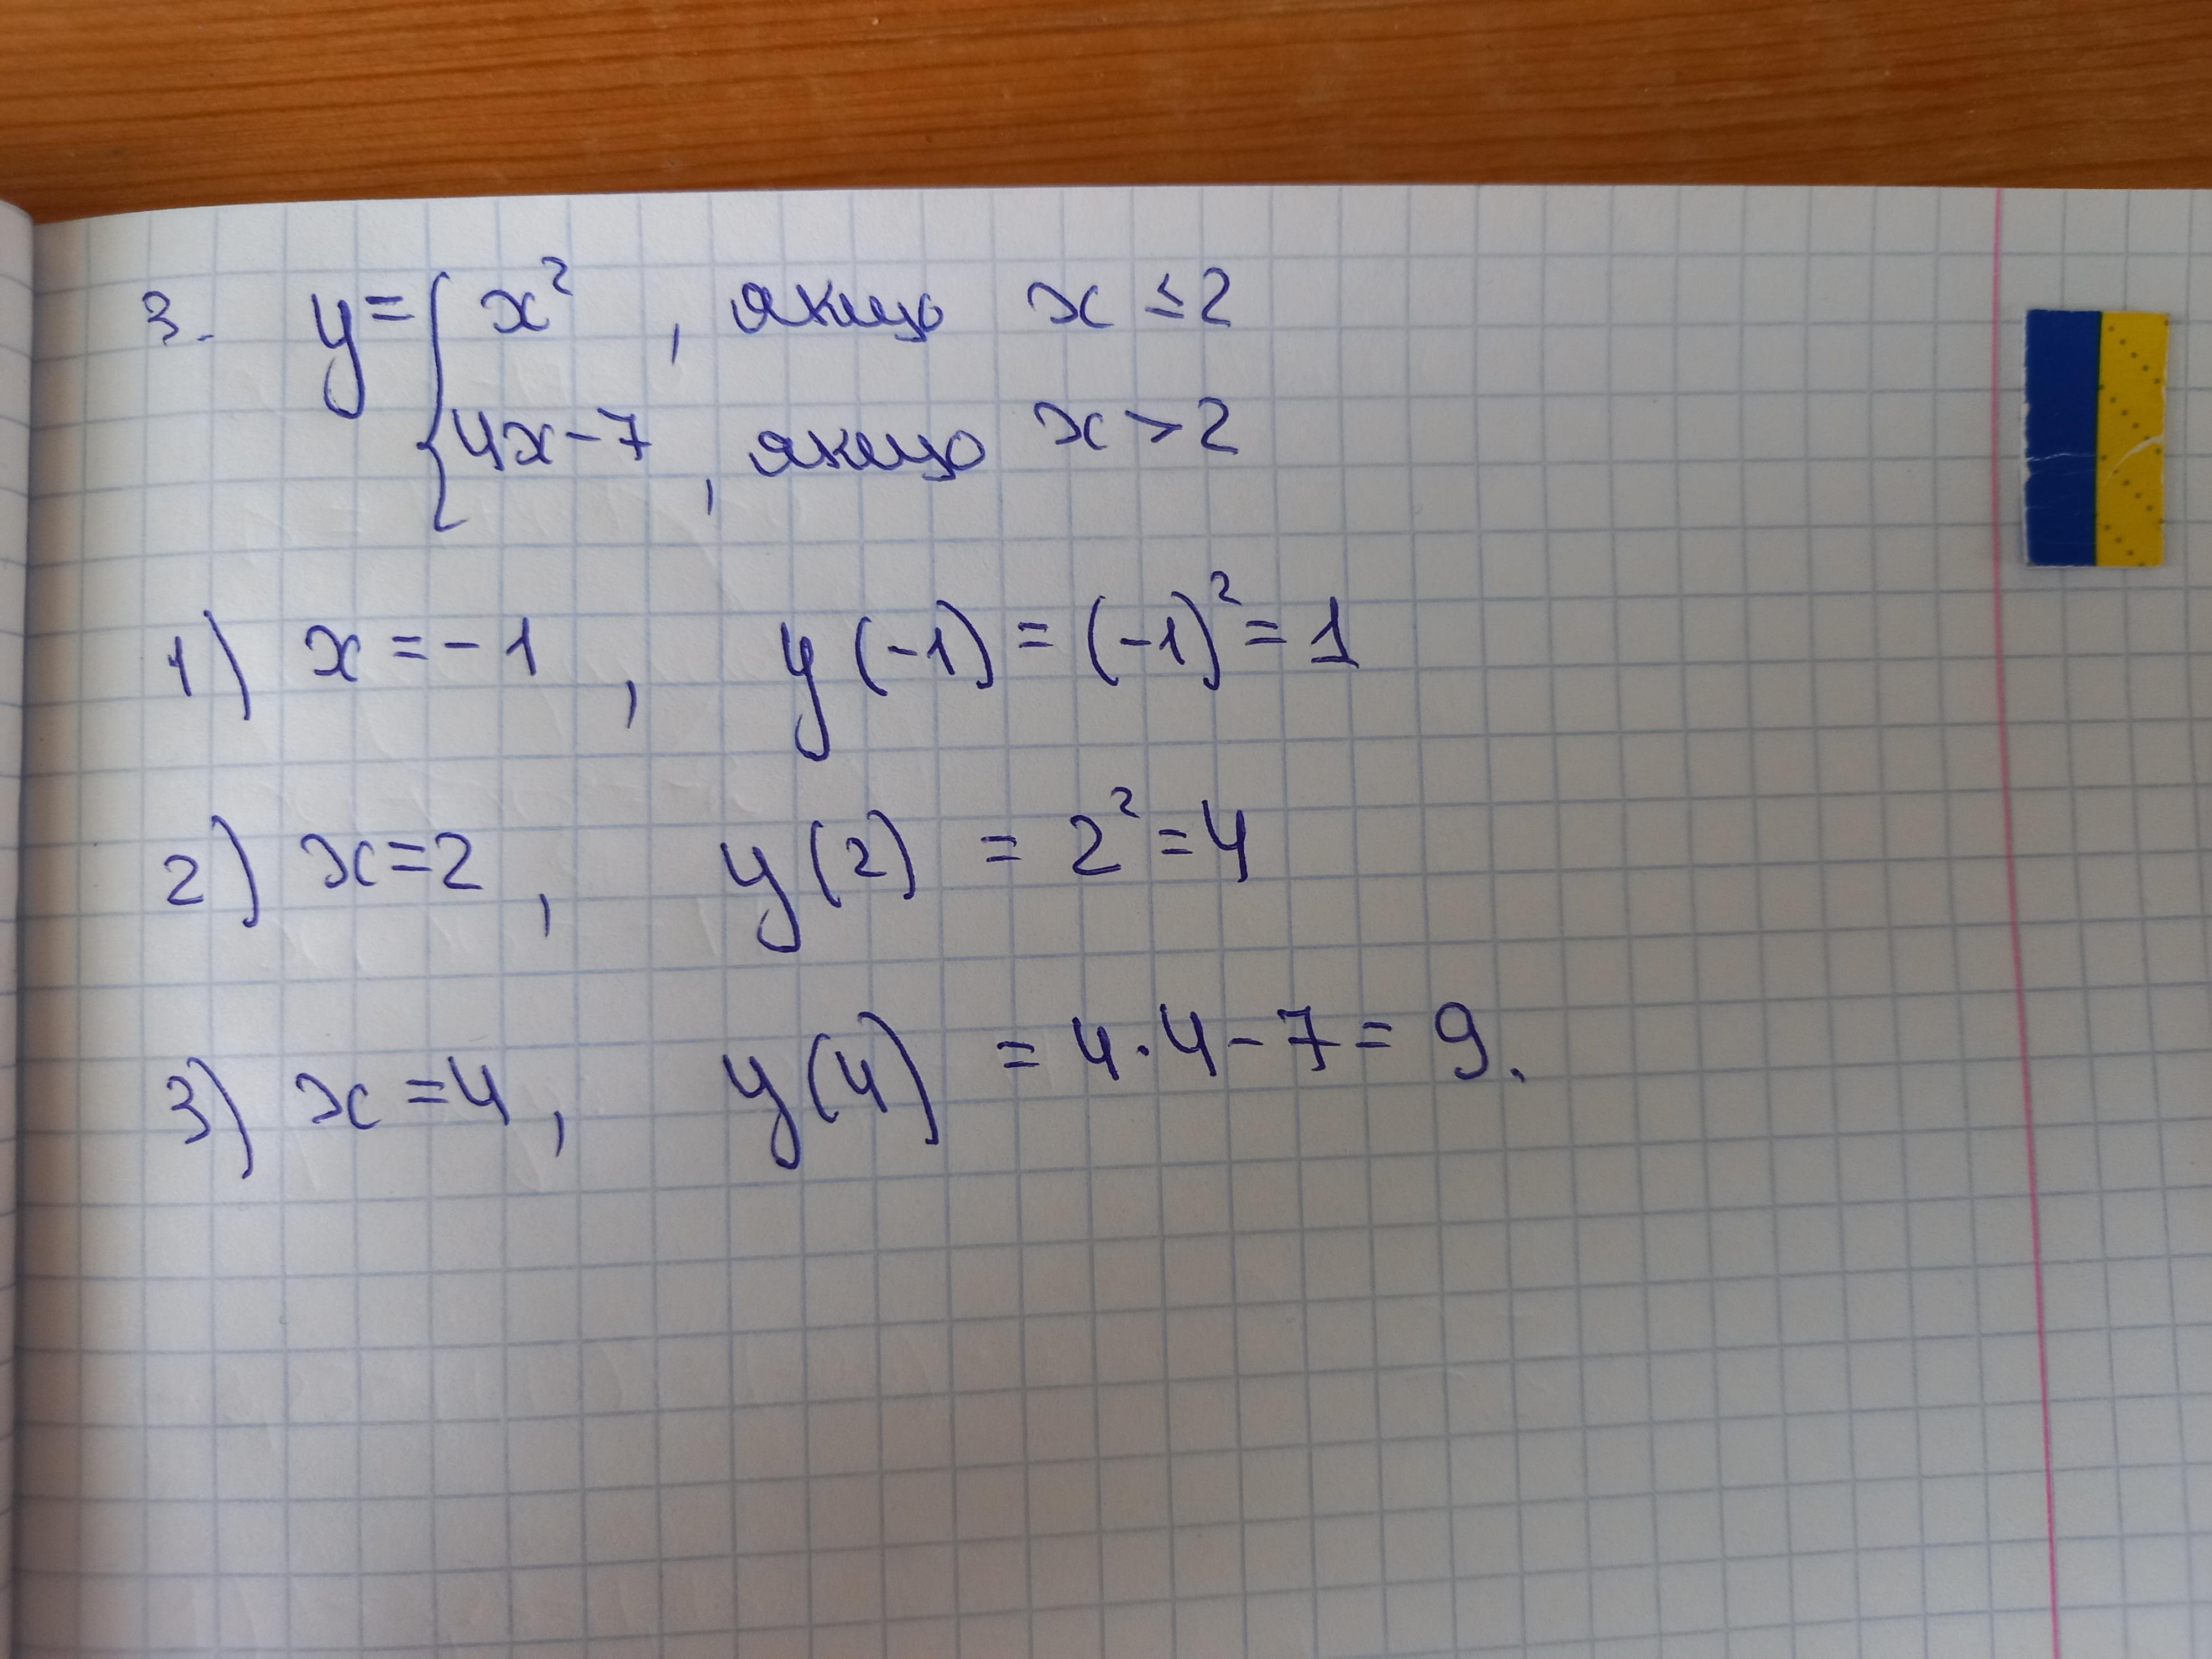 3. y = { x², якщо x ≤ 2
4x - 7, якщо x > 2
1) x = -1, y(-1) = (-1)² = 1
2) x = 2, y(2) = 2² = 4
3) x = 4, y(4) = 4·4 - 7 = 9.